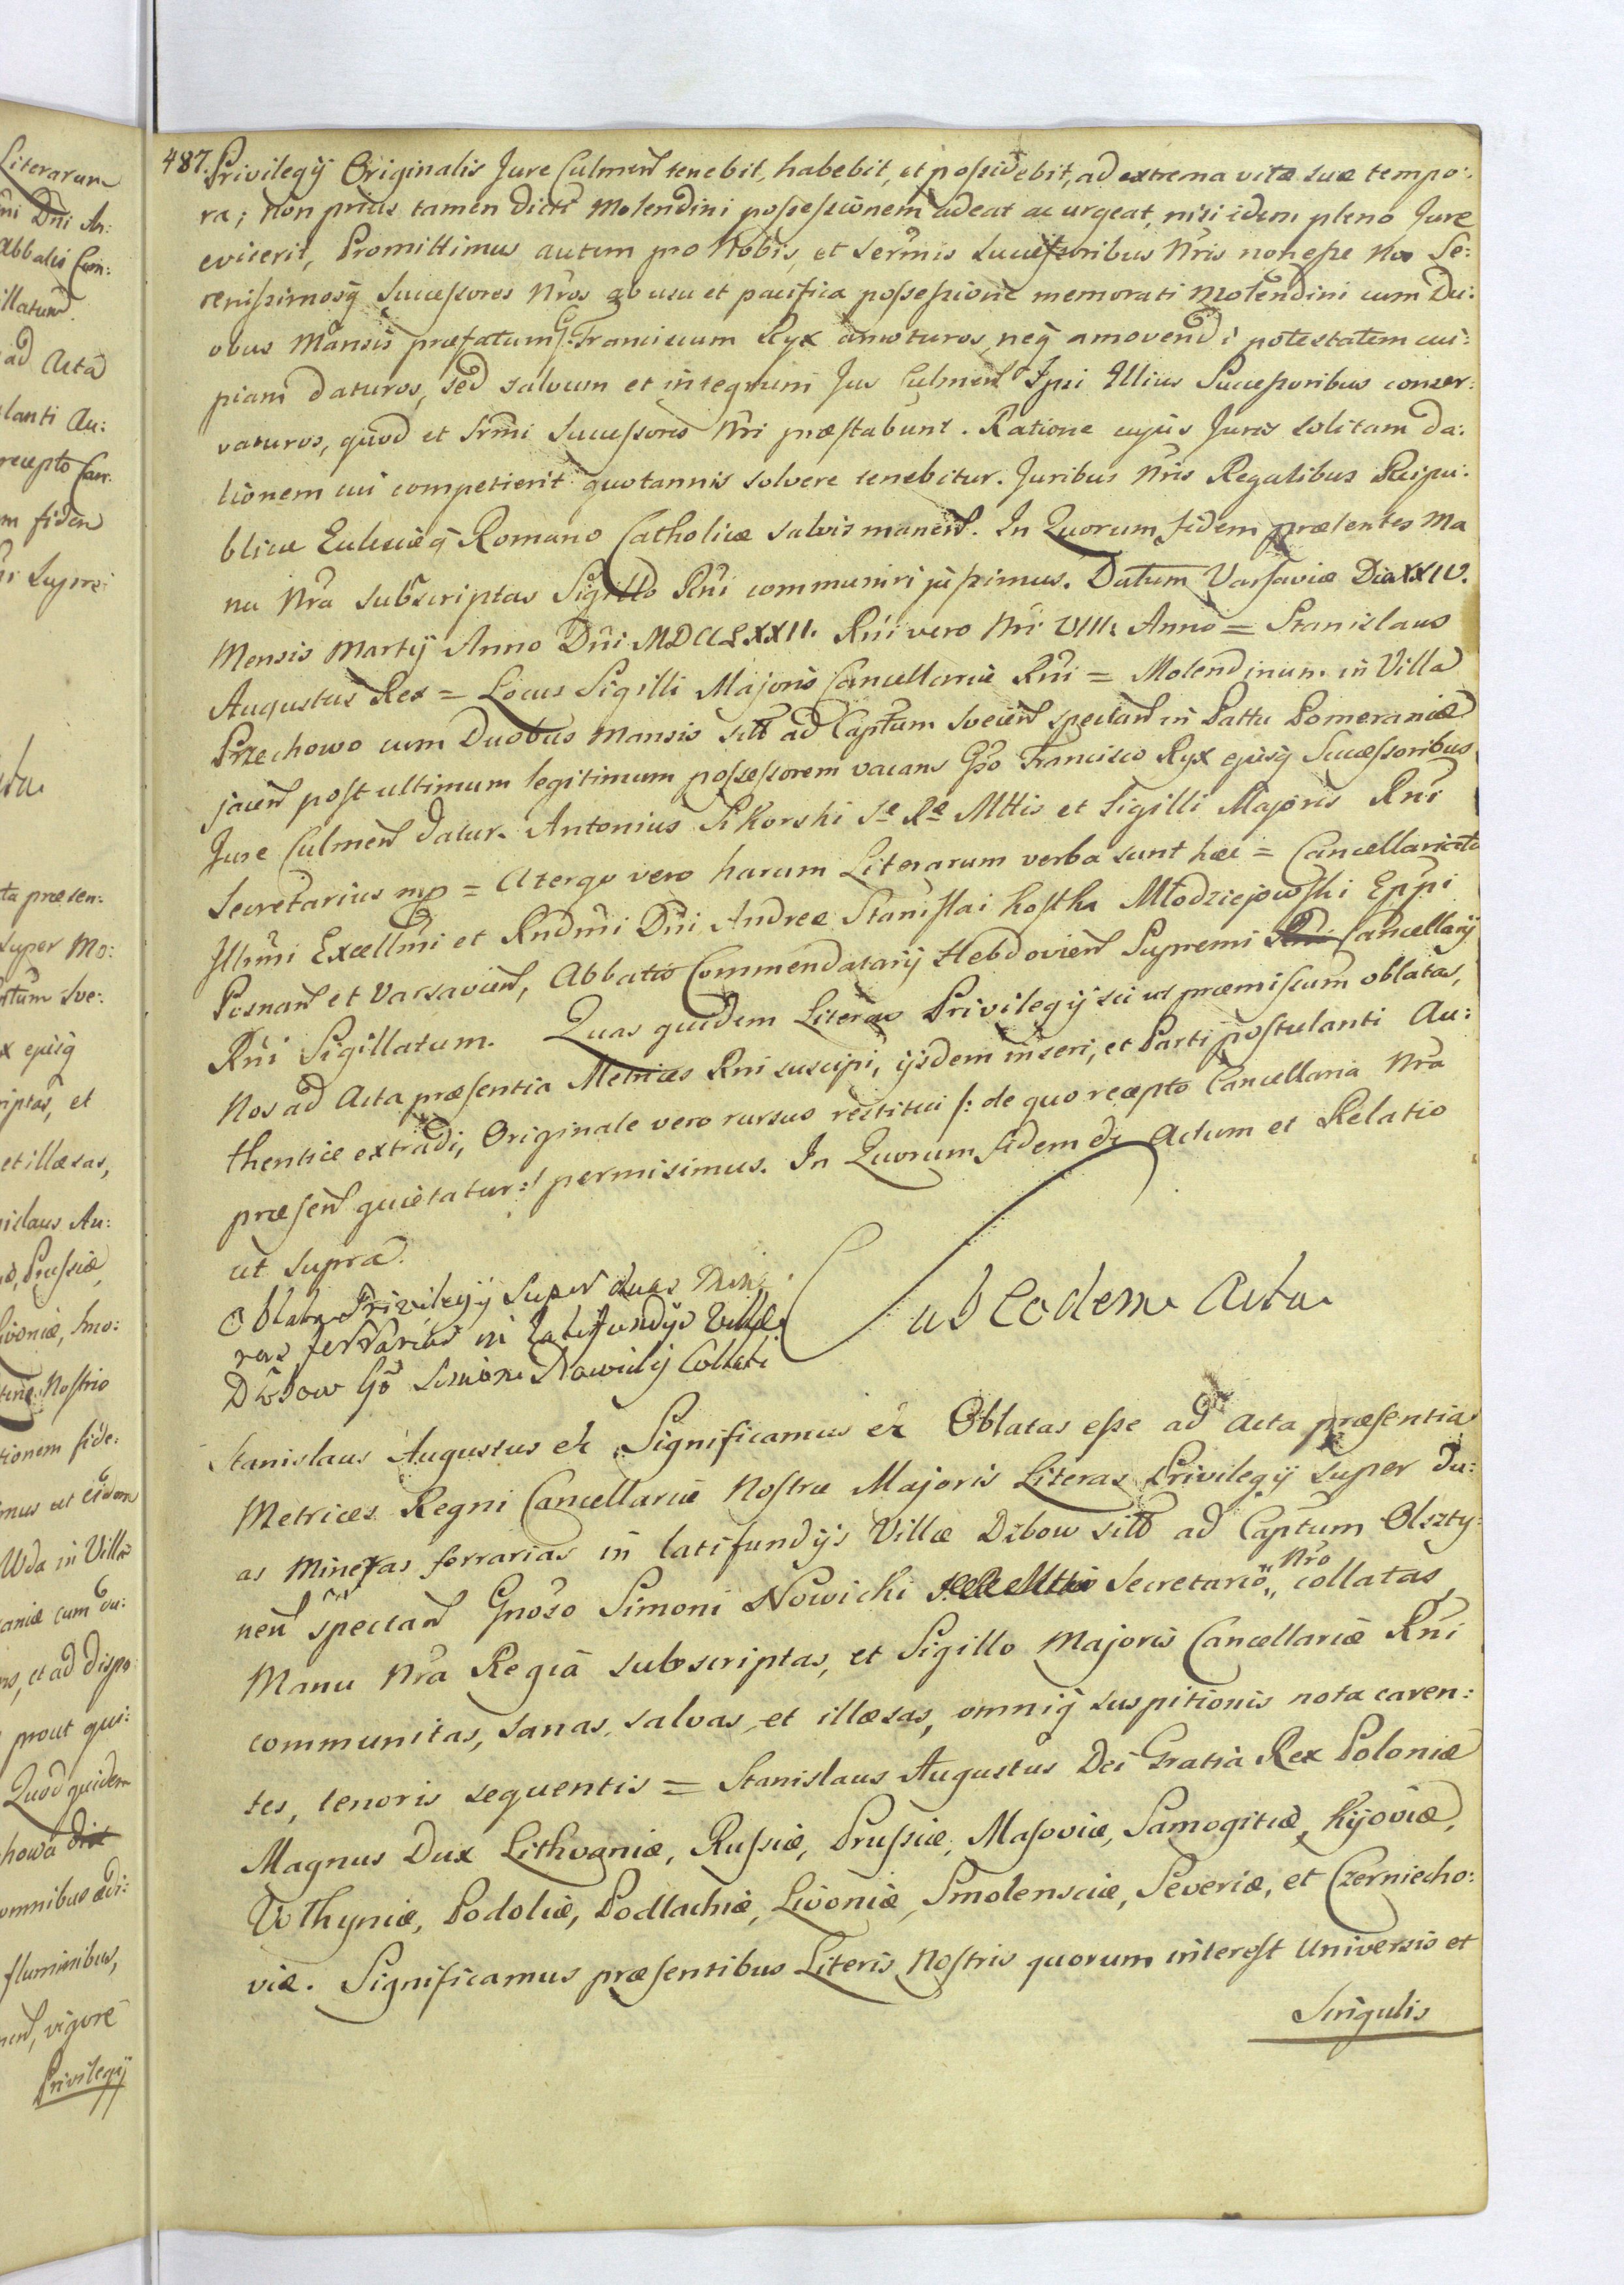 487. Privilegÿ Originalis Jure Culmen̄ tenebit, habebit, et possidebit, ad extrema vitæ suæ tempo:
ra; non prius tamen dicti Molendini possessionem adeat ac urgeat, nisi idem pleno Jure
evicerit, Promittimus autem pro Nobis, et Serm̄is Successoribus Nr̄is non esse Nos Se:
renissimosq̄ Successores Nr̄os ab usu et pacifica possessione memorati Molendini cum Du:
obus Mansis præfatum G. Franciscum Ryx amoturos neq̄ amovendi potestatem cui:
piam daturos, sed salvum et integrum Jus Culmen̄ Ipsi Illius Successoribus conser:
vaturos, quod et Srm̄i Successores Nr̄i præstabunt. Ratione cujus Juris solitam da:
tionem cui competierit quotannis solvere tenebitur. Juribus Nr̄is Regalibus Reipu:
blicæ Ecclesiæq̄ Romano Catholicæ salvis manen̄. In Quorum fidem præsentes Ma
nu Nr̄a subscriptas Sigillo Rn̄i communiri jussimus. Datum Varsaviæ Die XXIV.
Mensis Martÿ Anno Dn̄i MDCCLXXII. Rn̄i vero Nr̄i VIII. Anno = Stanislaus
Augustus Rex = Locus Sigilli Majoris Cancellariæ Rn̄i = Molendinum in Villa
Przechowo cum Duobus Mansis sitt̄ ad Capt̄um Svecien̄ spectan̄ in Pattu Pomeraniæ
jacen̄ post ultimum legitimum possessorem vacans Gs̄o Francisco Ryx ejusq̄ Successoribus
Jure Culmen̄ datur. Antonius Sikorski Sæ Ræ Mttis et Sigilli Majoris Rn̄i
Secretarius mp = Atergo vero harum Literarum verba sunt hæc = Cancellariatu
Illmi Excellm̄i et Rndm̄i Dn̄i Andreæ Stanislai Kostka Młodziejowski Epp̄i
Posnan̄ et Varsavien̄, Abbatis Commendatarÿ Hebdovien̄ Supremi Rn̄i Cancellarÿ
Rn̄i Sigillatum. Quas quidem Literas Privilegÿ sic ut præmissum oblatas,
Nos ad Acta præsentia Metrices Rni suscipi, ijsdem inseri, et Parti postulanti Au:
thentice extradi, Originale vero rursus restitui /: de quo recepto Cancellaria Nr̄a
præsen̄ quietatur :/ permisimus. In Quorum fidem &c. Actum et Relatio
ut supra.
Oblata Privilegÿ super duas Mine
ras ferrarias in Latifundÿs Villæ
Dzbow Gō Simoni Nowicky Collati
Sub Eodem Actu
Stanislaus Augustus &c. Significamus &c. Oblatas esse ad Acta præsentia
Metrices Regni Cancellariæ Nostræ Majoris Literas Privilegÿ super du:
as Mineras ferrarias in latifundÿs Villæ Dzbow sitt̄ ad Capt̄um Olszty:
nen̄ spectan̄ Gnoso Simoni Nowicki Secretario Nr̄o collatas,
Manu Nr̄a Regia subscriptas, et Sigillo Majoris Cancellariæ Rn̄i
communitas, sanas, salvas et illæsas, omniq̄ suspitionis nota caren:
tes, tenoris sequentis = Stanislaus Augustus Dei Gratia Rex Poloniæ
Magnus Dux Lithvaniæ, Russiæ, Prussiæ, Masoviæ, Samogitiæ, Kijoviæ,
Volhyniæ, Podoliæ, Podlachiæ, Livoniæ, Smolensciæ, Severiæ, et Czerniecho:
viæ. Significamus præsentibus Literis Nostris quorum interest Universis et
Singulis